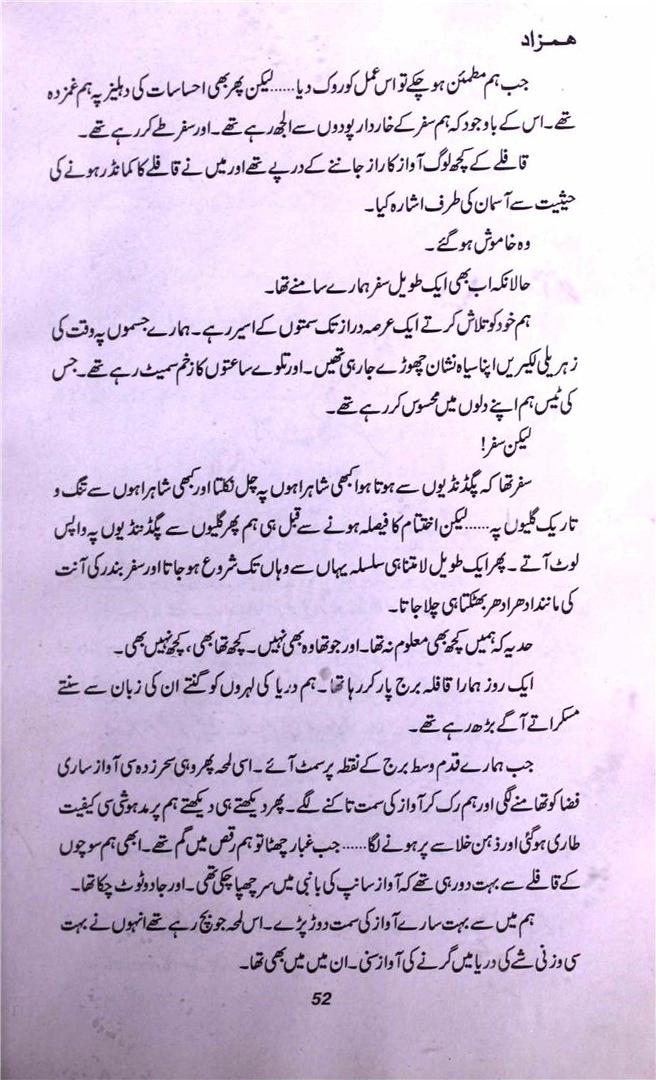 ہمزاد
جب ہم مطمئن ہو چکے تو اس عمل کو روک دیا......لیکن پھر بھی احساسات کی دہلیز پہ ہم غمزدہ
تھے۔ اس کے باوجود کہ ہم سفر کے خاردار پودوں سے الجھ رہے تھے۔ اور سفر طے کر رہے تھے۔
قافلے کے کچھ لوگ آواز کا راز جاننے کے درپے تھے اور میں نے قافلے کا کمانڈر ہونے کی
حیثیت سے آسمان کی طرف اشارہ کیا۔
وہ خاموش ہو گئے۔
حالانکہ اب بھی ایک طویل سفر ہمارے سامنے تھا۔
ہم خود کو تلاش کرتے ایک عرصہ دراز تک سمتوں کے اسیر رہے۔ ہمارے جسموں پہ وقت کی
زہریلی لکیریں اپنا سیاہ نشان چھوڑے جا رہی تھیں۔ اور تلوے ساعتوں کا زخم سمیٹ رہے تھے۔ جس
کی ٹیس ہم اپنے دلوں میں محسوس کر رہے تھے۔
لیکن سفر!
سفر تھا کہ پگڈنڈیوں سے ہوتا ہوا کبھی شاہراہوں پہ چل نکلتا اور کبھی شاہراہوں سے تنگ و
تاریک گلیوں پہ......لیکن اختتام کا فیصلہ ہونے سے قبل ہی ہم پھر گلیوں سے پگڈنڈیوں پہ واپس
لوٹ آتے۔ پھر ایک طویل لامتناہی سلسلہ یہاں سے وہاں تک شروع ہو جاتا اور سفر بندر کی آنت
کی مانند ادھر ادھر بھٹکتا ہی چلا جاتا۔
حد یہ کہ ہمیں کچھ بھی معلوم نہ تھا۔ اور جو تھا وہ بھی نہیں۔ کچھ تھا بھی، کچھ نہیں بھی۔
ایک روز ہمارا قافلہ برج پار کر رہا تھا۔ ہم دریا کی لہروں کو گنتے ان کی زبان سے سنتے
مسکراتے آگے بڑھ رہے تھے۔
جب ہمارے قدم وسط برج کے نقطہ پر سمٹ آئے۔ اسی لمحہ پھر وہی سحر زدہ سی آواز ساری
فضا کو تھامنے لگی اور ہم رک کر آواز کی سمت تاکنے لگے۔ پھر دیکھتے ہی دیکھتے ہم پر مدہوشی سی کیفیت
طاری ہو گئی اور ذہن خلا سے پر ہونے لگا......جب غبار چھٹا تو ہم رقص میں گم تھے۔ ابھی ہم سوچوں
کے قافلے سے بہت دور ہی تھے کہ آواز سانپ کی بانبی میں سر چھپا چکی تھی۔ اور جادو ٹوٹ چکا تھا۔
ہم میں سے بہت سارے آواز کی سمت دوڑ پڑے۔ اس لمحہ جو بچ رہے تھے انہوں نے بہت
سی وزنی شے کی دریا میں گرنے کی آواز سنی۔ ان میں میں بھی تھا۔
52